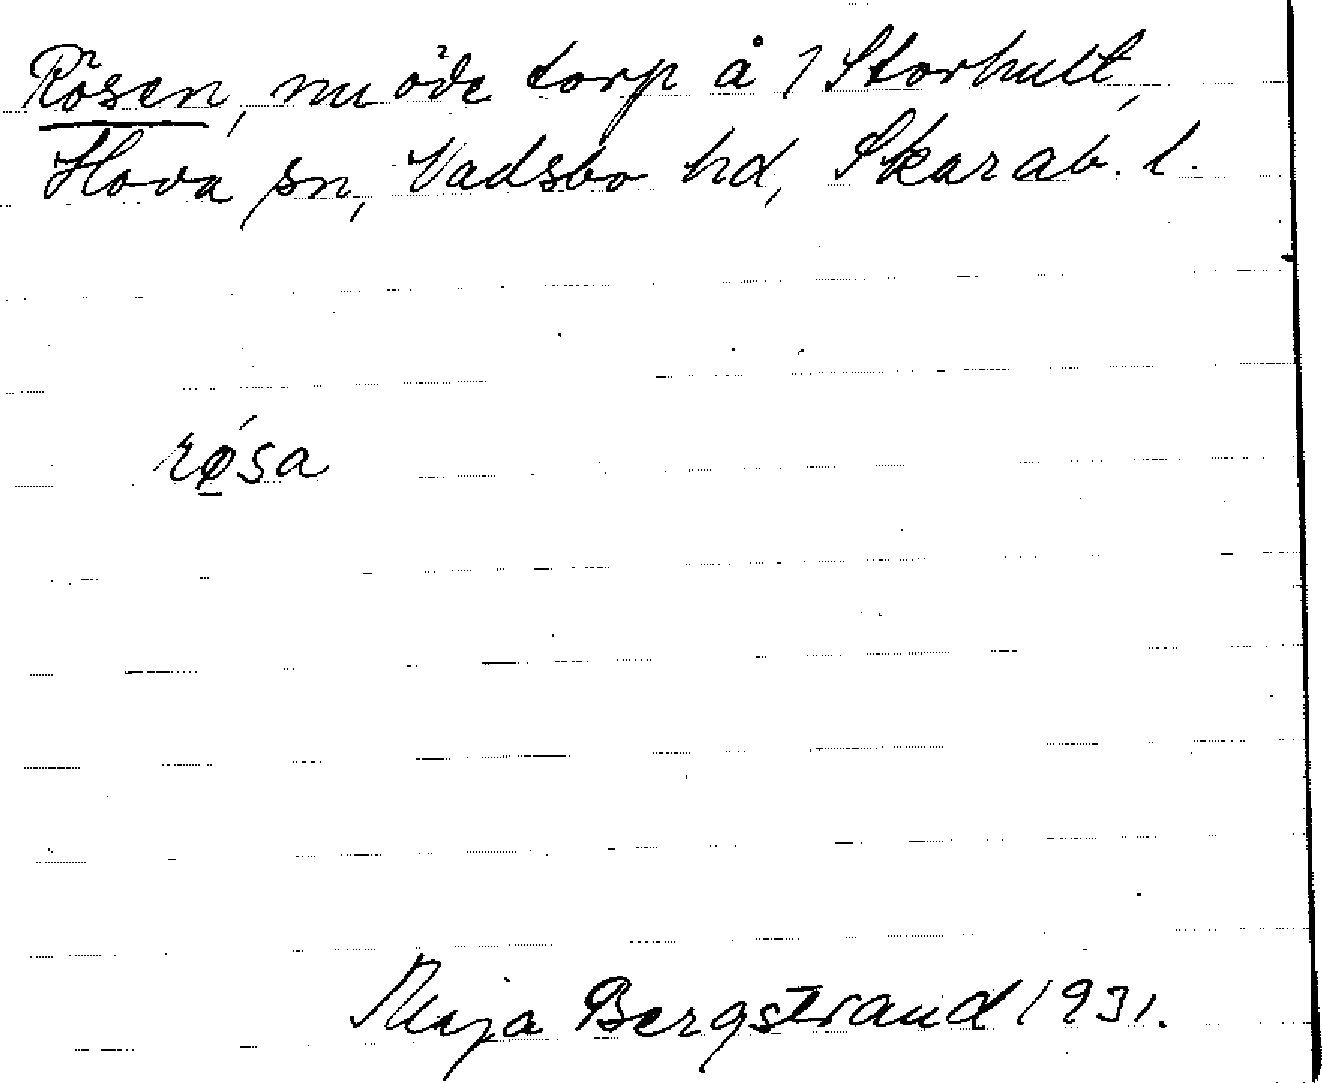 Rösen, nu öde torp å 1 Storhult,
Hova sn, Vadsbo hd, Skarab. l.
rǿ̱sa
Maja Bergstrand 1931.